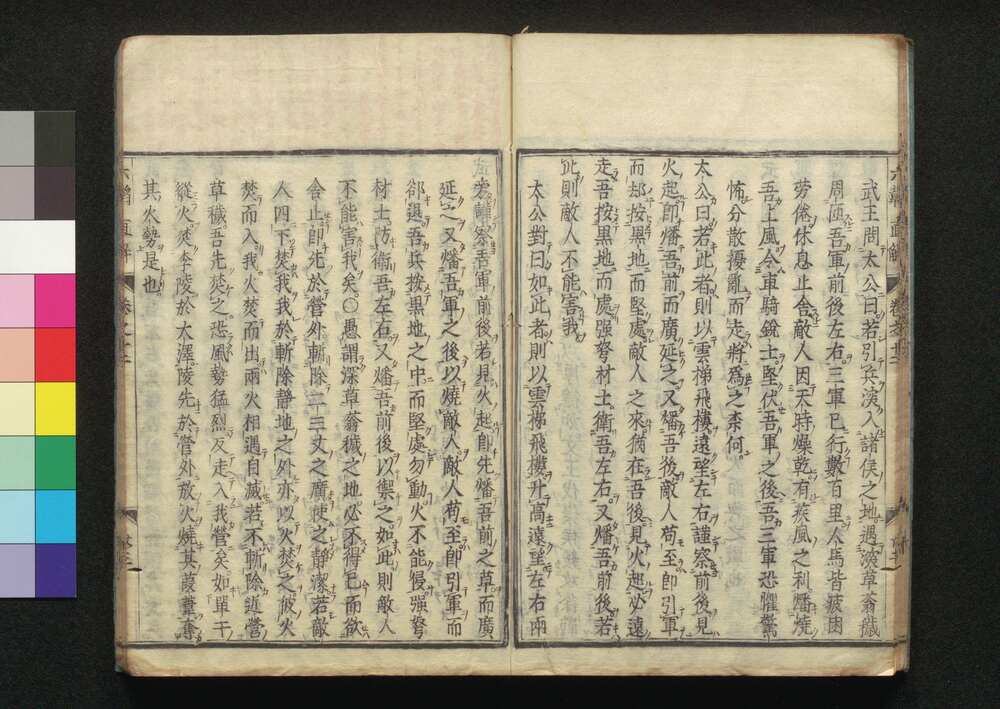 武王問太公曰若引兵深入諸侯之地遇深草蓊穢
周匝吾軍前後左右三軍已行數百里人馬皆疲困
勞倦休息止舍敵人因天時燥乾有疾風之利燔燒
吾上風令車騎銳士堅伏吾軍之後吾三軍恐懼驚
怖分散擾亂而走將爲之柰何
太公曰若此者則以雲梯飛樓遠望左右謹察前後見
火起卽燔吾前而廣延之又燔吾後敵人苟至卽引軍
而却按黑地而堅處敵人之來猶在吾後見火起必遠
走吾按黑地而處强弩材士衛吾左右又燔吾前後若
此則敵人不能害我
太公對曰如此者則以雲梯飛樓升高遠望左右兩
旁謹察吾軍前後若見火起自先燔吾前之草而廣
延之又燔吾軍之後以燒敵人敵人苟至卽引軍而
郤退吾兵按黑地之中而堅處勿動火不能侵强弩
材士防衛吾左右又燔吾前後以禦之如此則敵人
不能害我矣○愚謂深草蓊穢之地必不得已而欲
舍止卽先於營外斬除二三丈之廣使之靜潔若敵
人四下焚我我於斬除靜地之外亦以火焚之彼火
焚而入我火焚而出兩火相遇自滅若不斬除近營
草穢吾先焚之恐風勢猛烈反走入我營矣如單于
從火焚李陵於大澤陵先於營外放火燒其葭葦奪
其火勢是也
六韜直解
卷之三